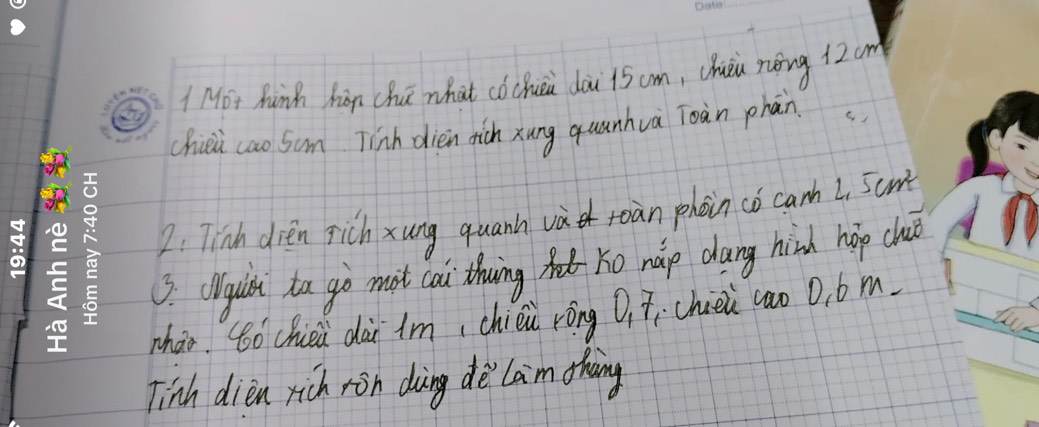 Date
1 Một hình hộp chữ nhật có chiều dài 15 cm, chiều rộng 12 cm
chiều cao 5cm Tính diện tích xung quanh và Toàn phần.
2. Tính diện tích xung quanh và toàn phần có cạnh 2,5cm²
3. Người ta gò một cái thùng ko nắp dạng hình hộp chữ
nhật. Có chiều dài 1m, chiều rộng 0,7, chiều cao 0,6 m.
Tính diện tích tôn dùng để làm thùng
19:44
Hà Anh nè 💐💐
Hôm nay 7:40 CH